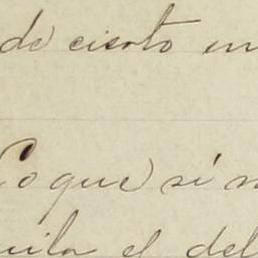 de cierto en
Lo que si n
uila el del